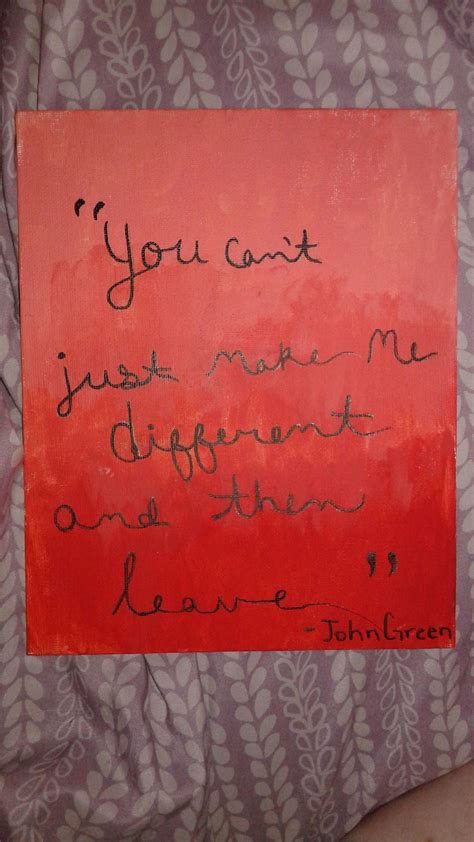 "You can't
just make me
different
and then
leave"
- John Green